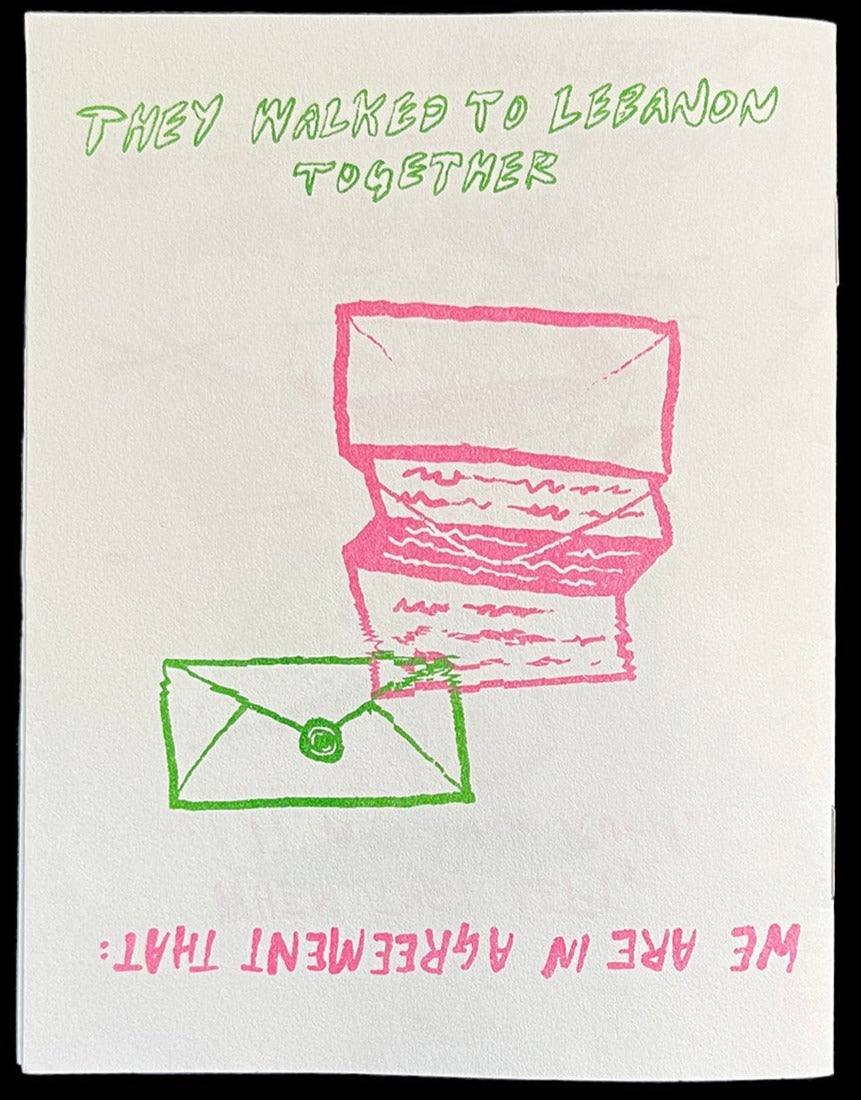 THEY WALKED TO LEBANON
TOGETHER
WE ARE IN AGREEMENT THAT: